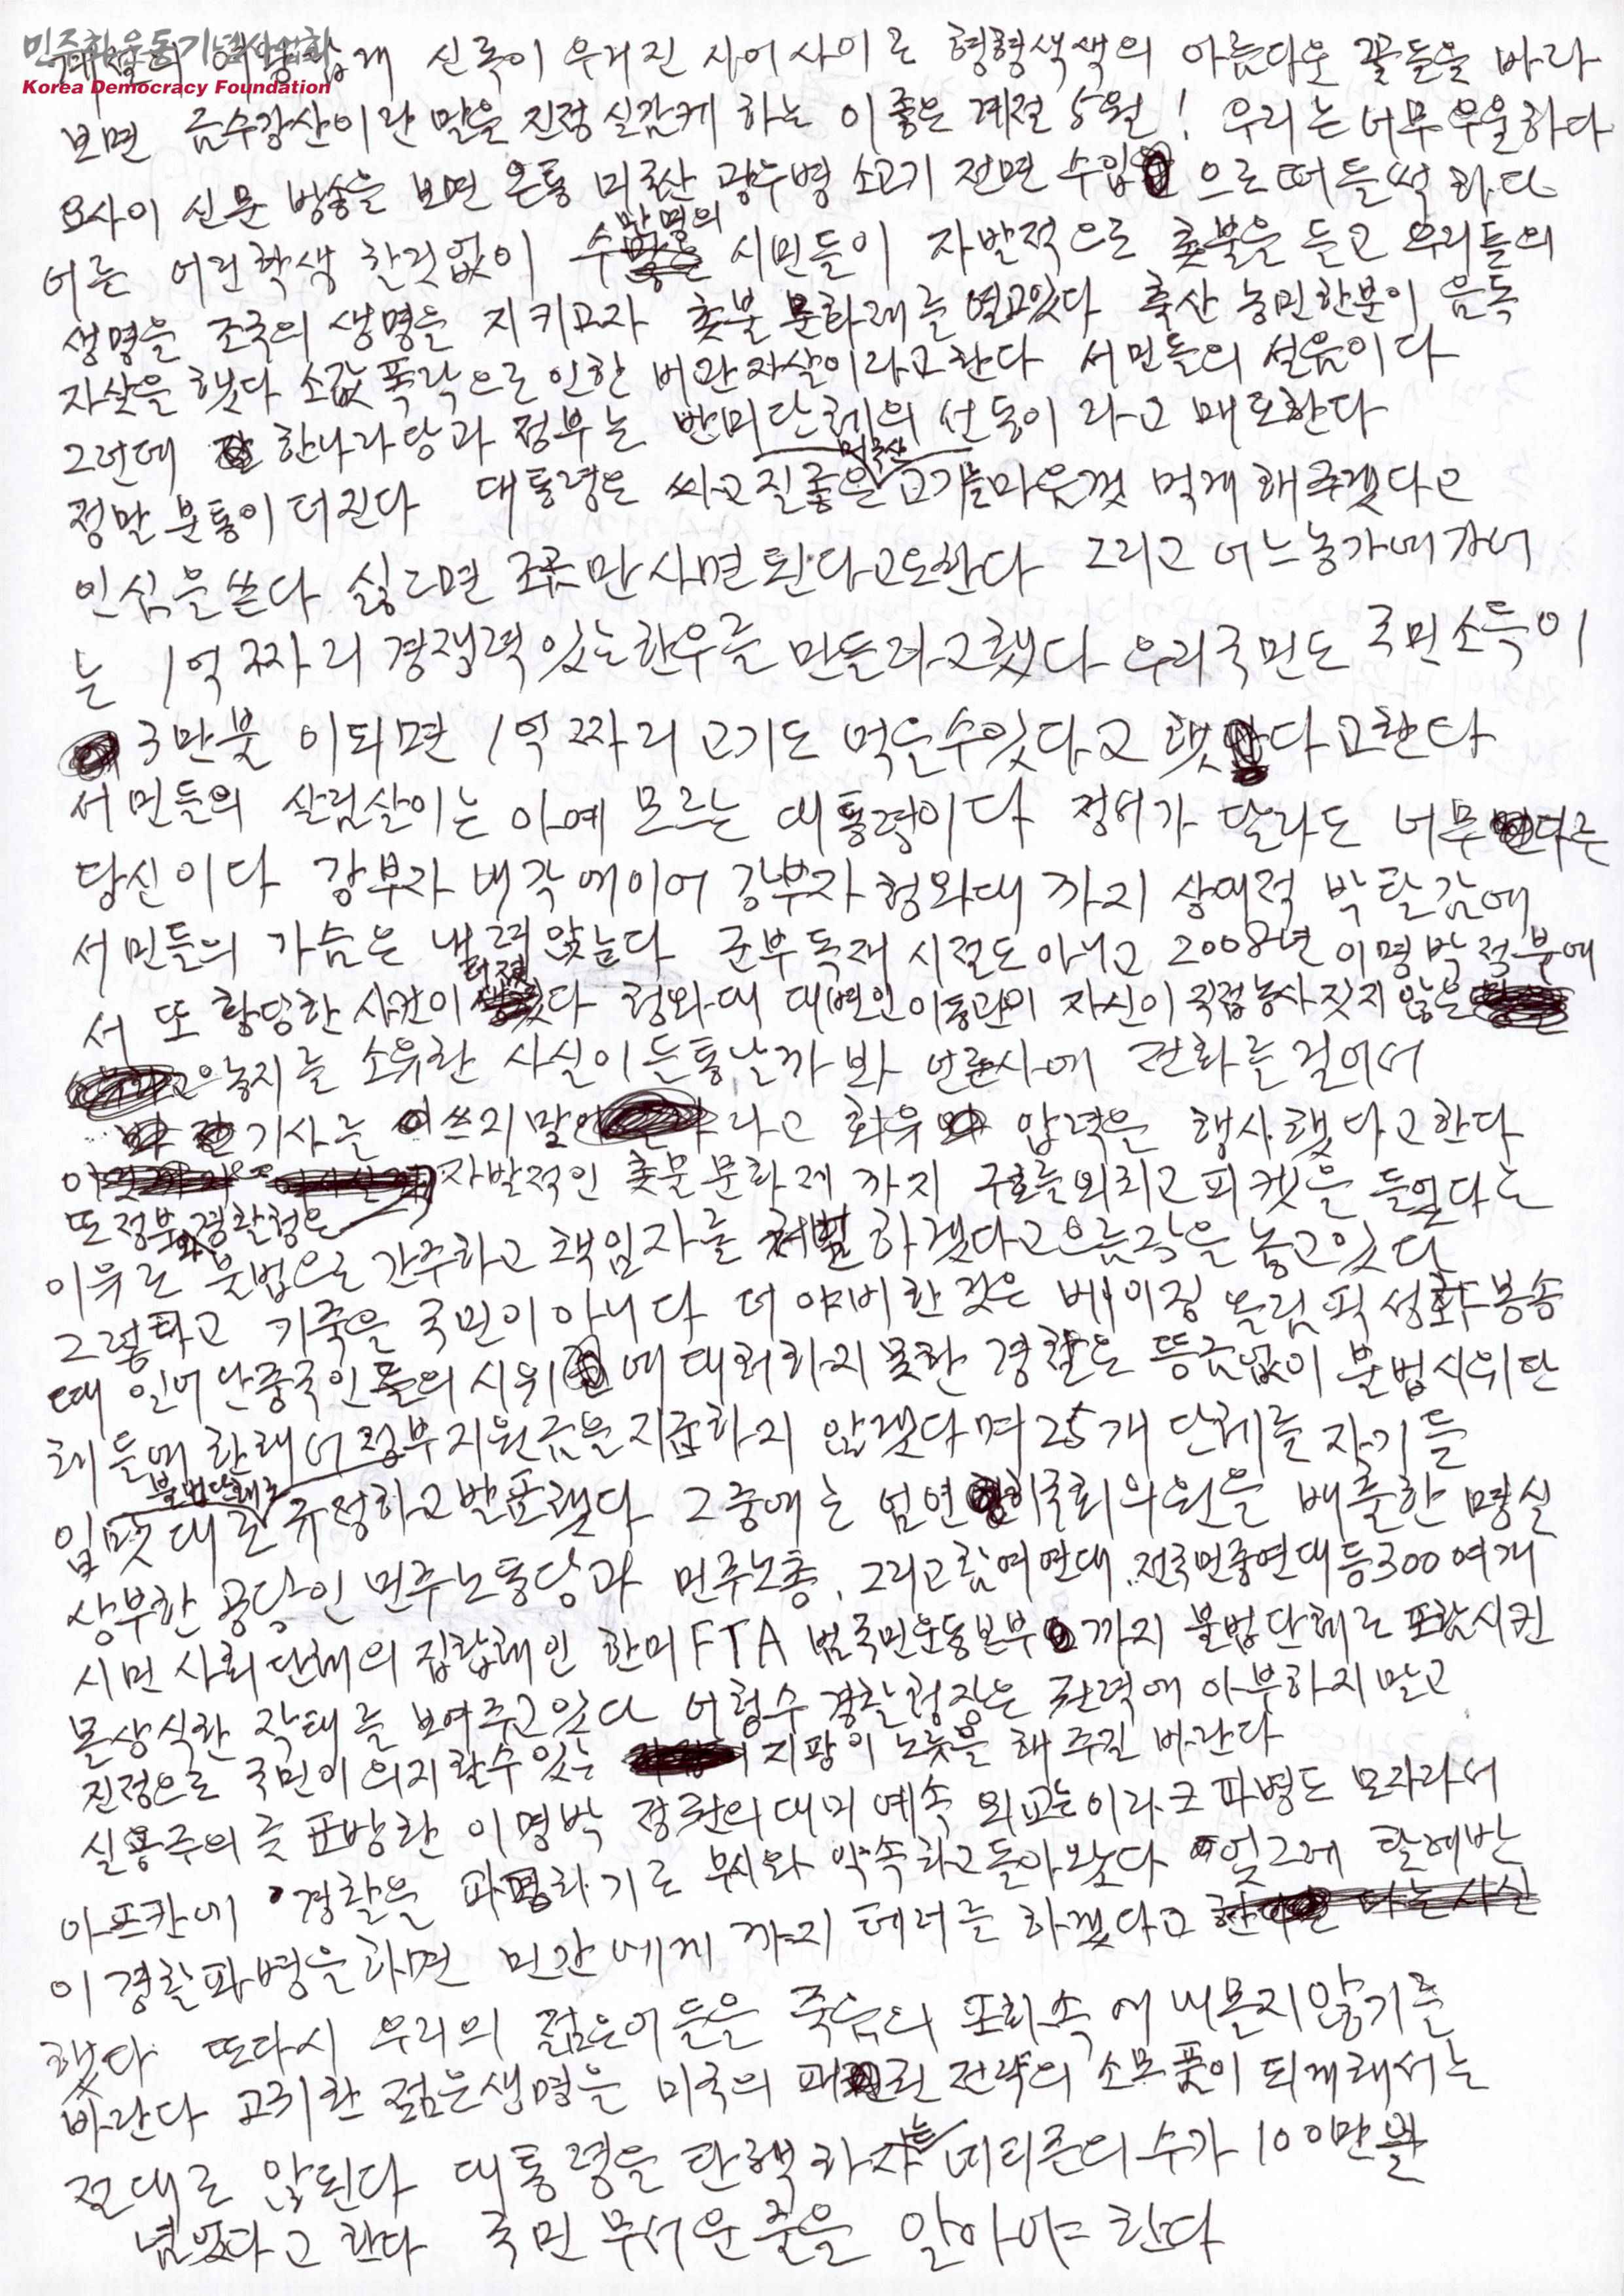 민주화운동기념사업회
Korea Democracy Foundation
신록이 우거진 사이사이로 형형색색의 아름다운 꽃들을 바라
보면 금수강산이란 말을 진정 실감케 하는 이 좋은 계절 5월! 우리는 너무 우울하다
요사이 신문 방송을 보면 온통 미국산 광우병 소고기 전면 수입으로 떠들썩 하다
어른 어린학생 할것없이 수만명의 시민들이 자발적으로 촛불을 들고 우리들의
생명을 조국의 생명을 지키고자 촛불 문화제를 열고있다 축산 농민한분이 음독
자살을 했다 소값폭락으로 인한 비관자살이라고한다 서민들의 설음이다
그런데 한나라당과 정부는 반미단체의 선동이 라고 매도한다
정말 분통이 터진다 대통령은 싸고 질좋은 미국산 고기를 마음껏 먹게 해주겠다고
인심을 쓴다 싫으면 조곰만 사면 된다고도한다 그리고 어느농가에가서
는 1억 짜리 경쟁력 있는 한우를 만들라고했다 우리국민도 국민소득이
3만불 이되면 1억 짜리 고기도 먹을수있다고 했다고한다
서민들의 살림살이는 아예 모르는 대통령이다 정서가 달라도 너무 다른
당신이다 강부자 내각에이어 강부자 청와대 까지 상대적 박탈감에
서민들의 가슴은 내려앉는다 군부독재 시절도 아니고 2008년 이명박정부에
서 또 황당한 사건이 터졌다 청와대 대변인 이동관이 자신이 직접농사짓지 않은
농지를 소유한 사실이 들통날까 봐 언론사에 전화를 걸어서
기사를 쓰지말라고 회유 압력을 행사했다고한다
자발적인 촛불문화제 까지 구호를외치고 피켓을 들었다는
또 정부와 경찰청은
이유로 불법으로 간주하고 책임자를 처벌 하겠다고 으름장을 놓고있다
그렇다고 기죽을 국민이 아니다 더 야비한 것은 베이징 올림픽 성화봉송
때 일어난중국인들의 시위에 대처하지 못한 경찰은 뜽금없이 불법시위단
체들에 한해서 정부지원금을 지급하지 않겠다며 25개 단체를 자기들
입맛대로 불법단체로 규정하고 발표했다 그중에는 엄연히 국회의원을 배출한 명실
상부한 공당인 민주노동당과 민주노총, 그리고 참여연대, 전국민중연대등 300여개
시민 사회단체의 집합체인 한미FTA 범국민운동본부 까지 불법단체로 포함시킨
몰상식한 작태를 보여주고있다 어청수 경찰청장은 권력에 아부하지말고
진정으로 국민이 의지할수있는 지팡이 노릇을 해주길 바란다
실용주의를 표방한 이명박 정권의 대미 예속 외교는 이라크 파병도 모자라서
아프칸에 경찰을 파병하기로 부시와 약속하고돌아왔다 엊그제 탈레반
이 경찰파병을하면 민간에게 까지 테러를 하겠다고
했다 또다시 우리의 젊은이들을 죽음의 포화속에 내몰지않기를
바란다 고귀한 젊은생명을 미국의 패권 전략의 소모품이 되게해서는
절대로 않된다 대통령을 탄핵하자는 네티즌의 수가 100만을
넘었다고 한다 국민 무서운줄을 알아야 한다